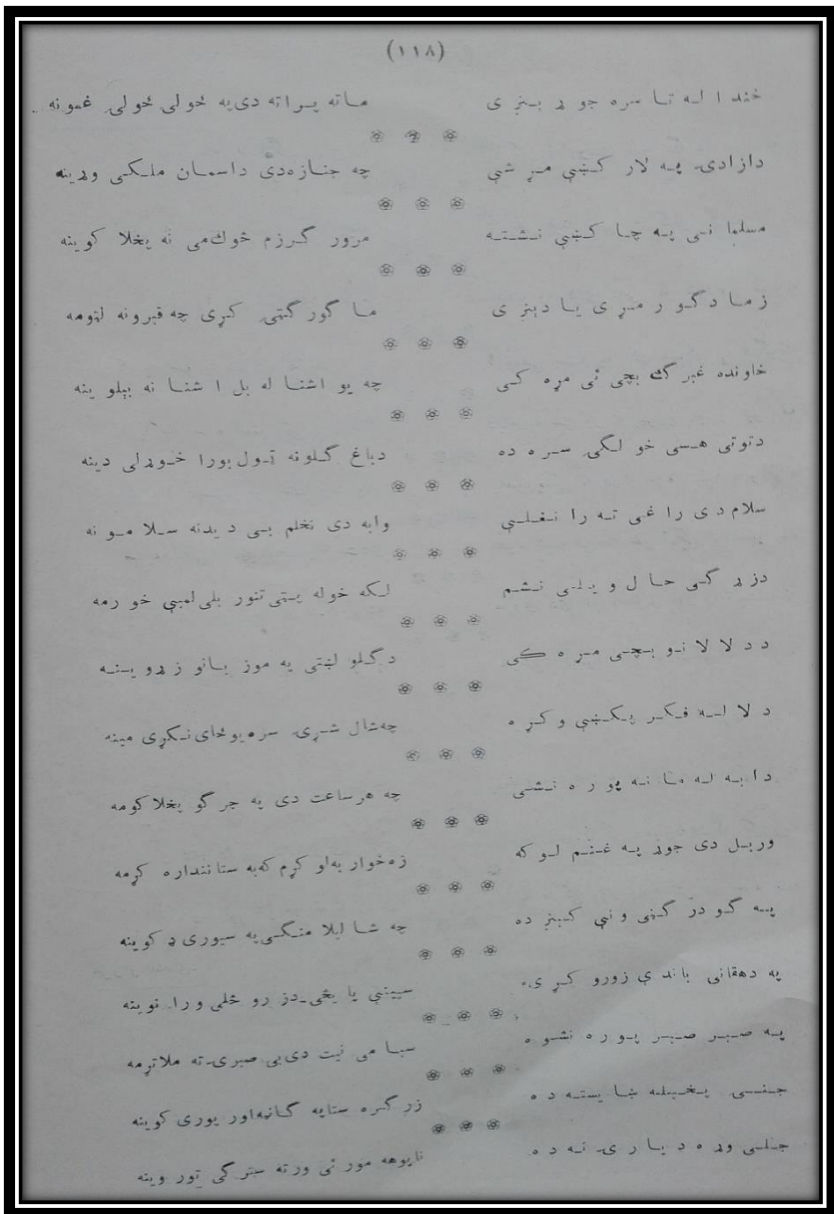 (۱۱۸)
خندا له تا سره جوړېنږی ماته پراته دی په خولی خولی غمونه
دازادۍ په لار کښې مړ شې چه جنازه دی داسمان ملکی وړینه
مسلما نی په چا کښې نشته مرور گرزم څوك می نه پخلا کوینه
زما د گور مړی یا دېنږی ما گور گټی کړی چه قبرونه لټومه
خاونده غبرگ بچی ئی مړه کی چه یو اشنا له بل اشنا نه بېلوینه
دتوتی هسی خولگۍ سره ده دباغ گلونه ټول بورا خوړلی دینه
سلام دی راغی ته را نغلې وا به دی نخلم بی دیدنه سلامونه
دزړگی حال ویلی نشم لکه خوله پټی تنور بلی لمبې خورمه
د دلالانو بچی مړه کی د گلو لښتی په موزیانو زړوینه
دلاله فکر پکښې وکړه چه شال شړۍ سره یوځای نکړی مینه
دابه له مانه پوره نشی چه هرساعت دی په جرگو پخلا کومه
وربل دی جوړ په غنم لو که زه خوار به لو کړم که به ستا ننداره کړمه
په گودر گنې ونې کښنږده چه شا لیلا منگی په سیوری ډ کوینه
په دهقانی باندې زورو کړی سپینې پایڅی دزرو ځلمی ورا نوینه
په صبر صبر پوره نشوه سبا می نیت دی بی صبرۍ ته ملاتړمه
جنـی پخپله ښایسته ده زرگره ستا په گاڼه اور پوری کوینه
جنلی وړه دیاری نه ده ناپوهه مور ئی ورته سترگی تور وینه